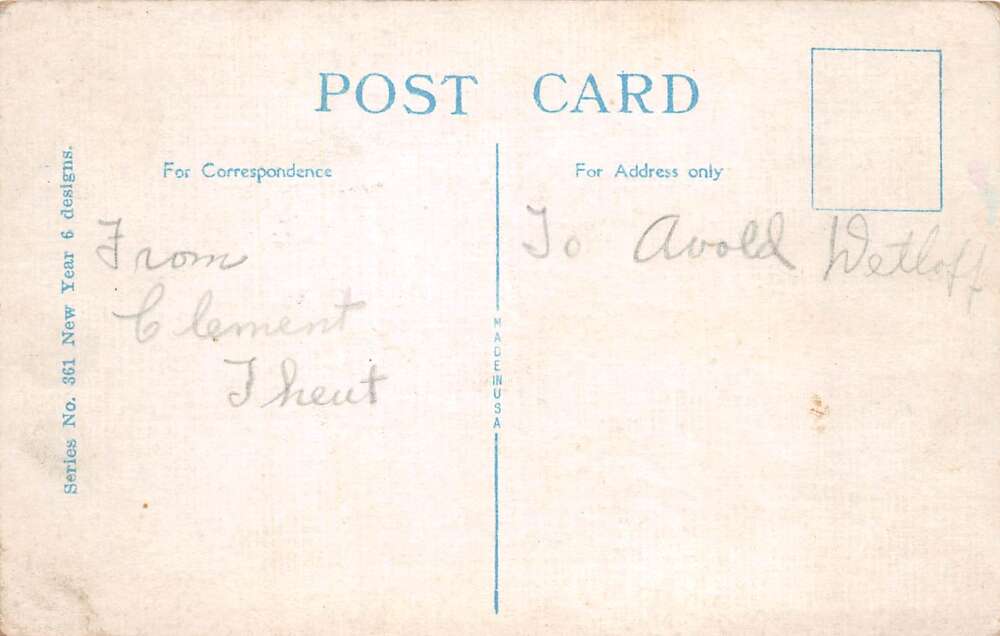 POST CARD
For Correspondence
For Address only
Series No. 361 New Year 6 designs.
From
Clement
Theut
To Avold Wetloff
MADE IN USA